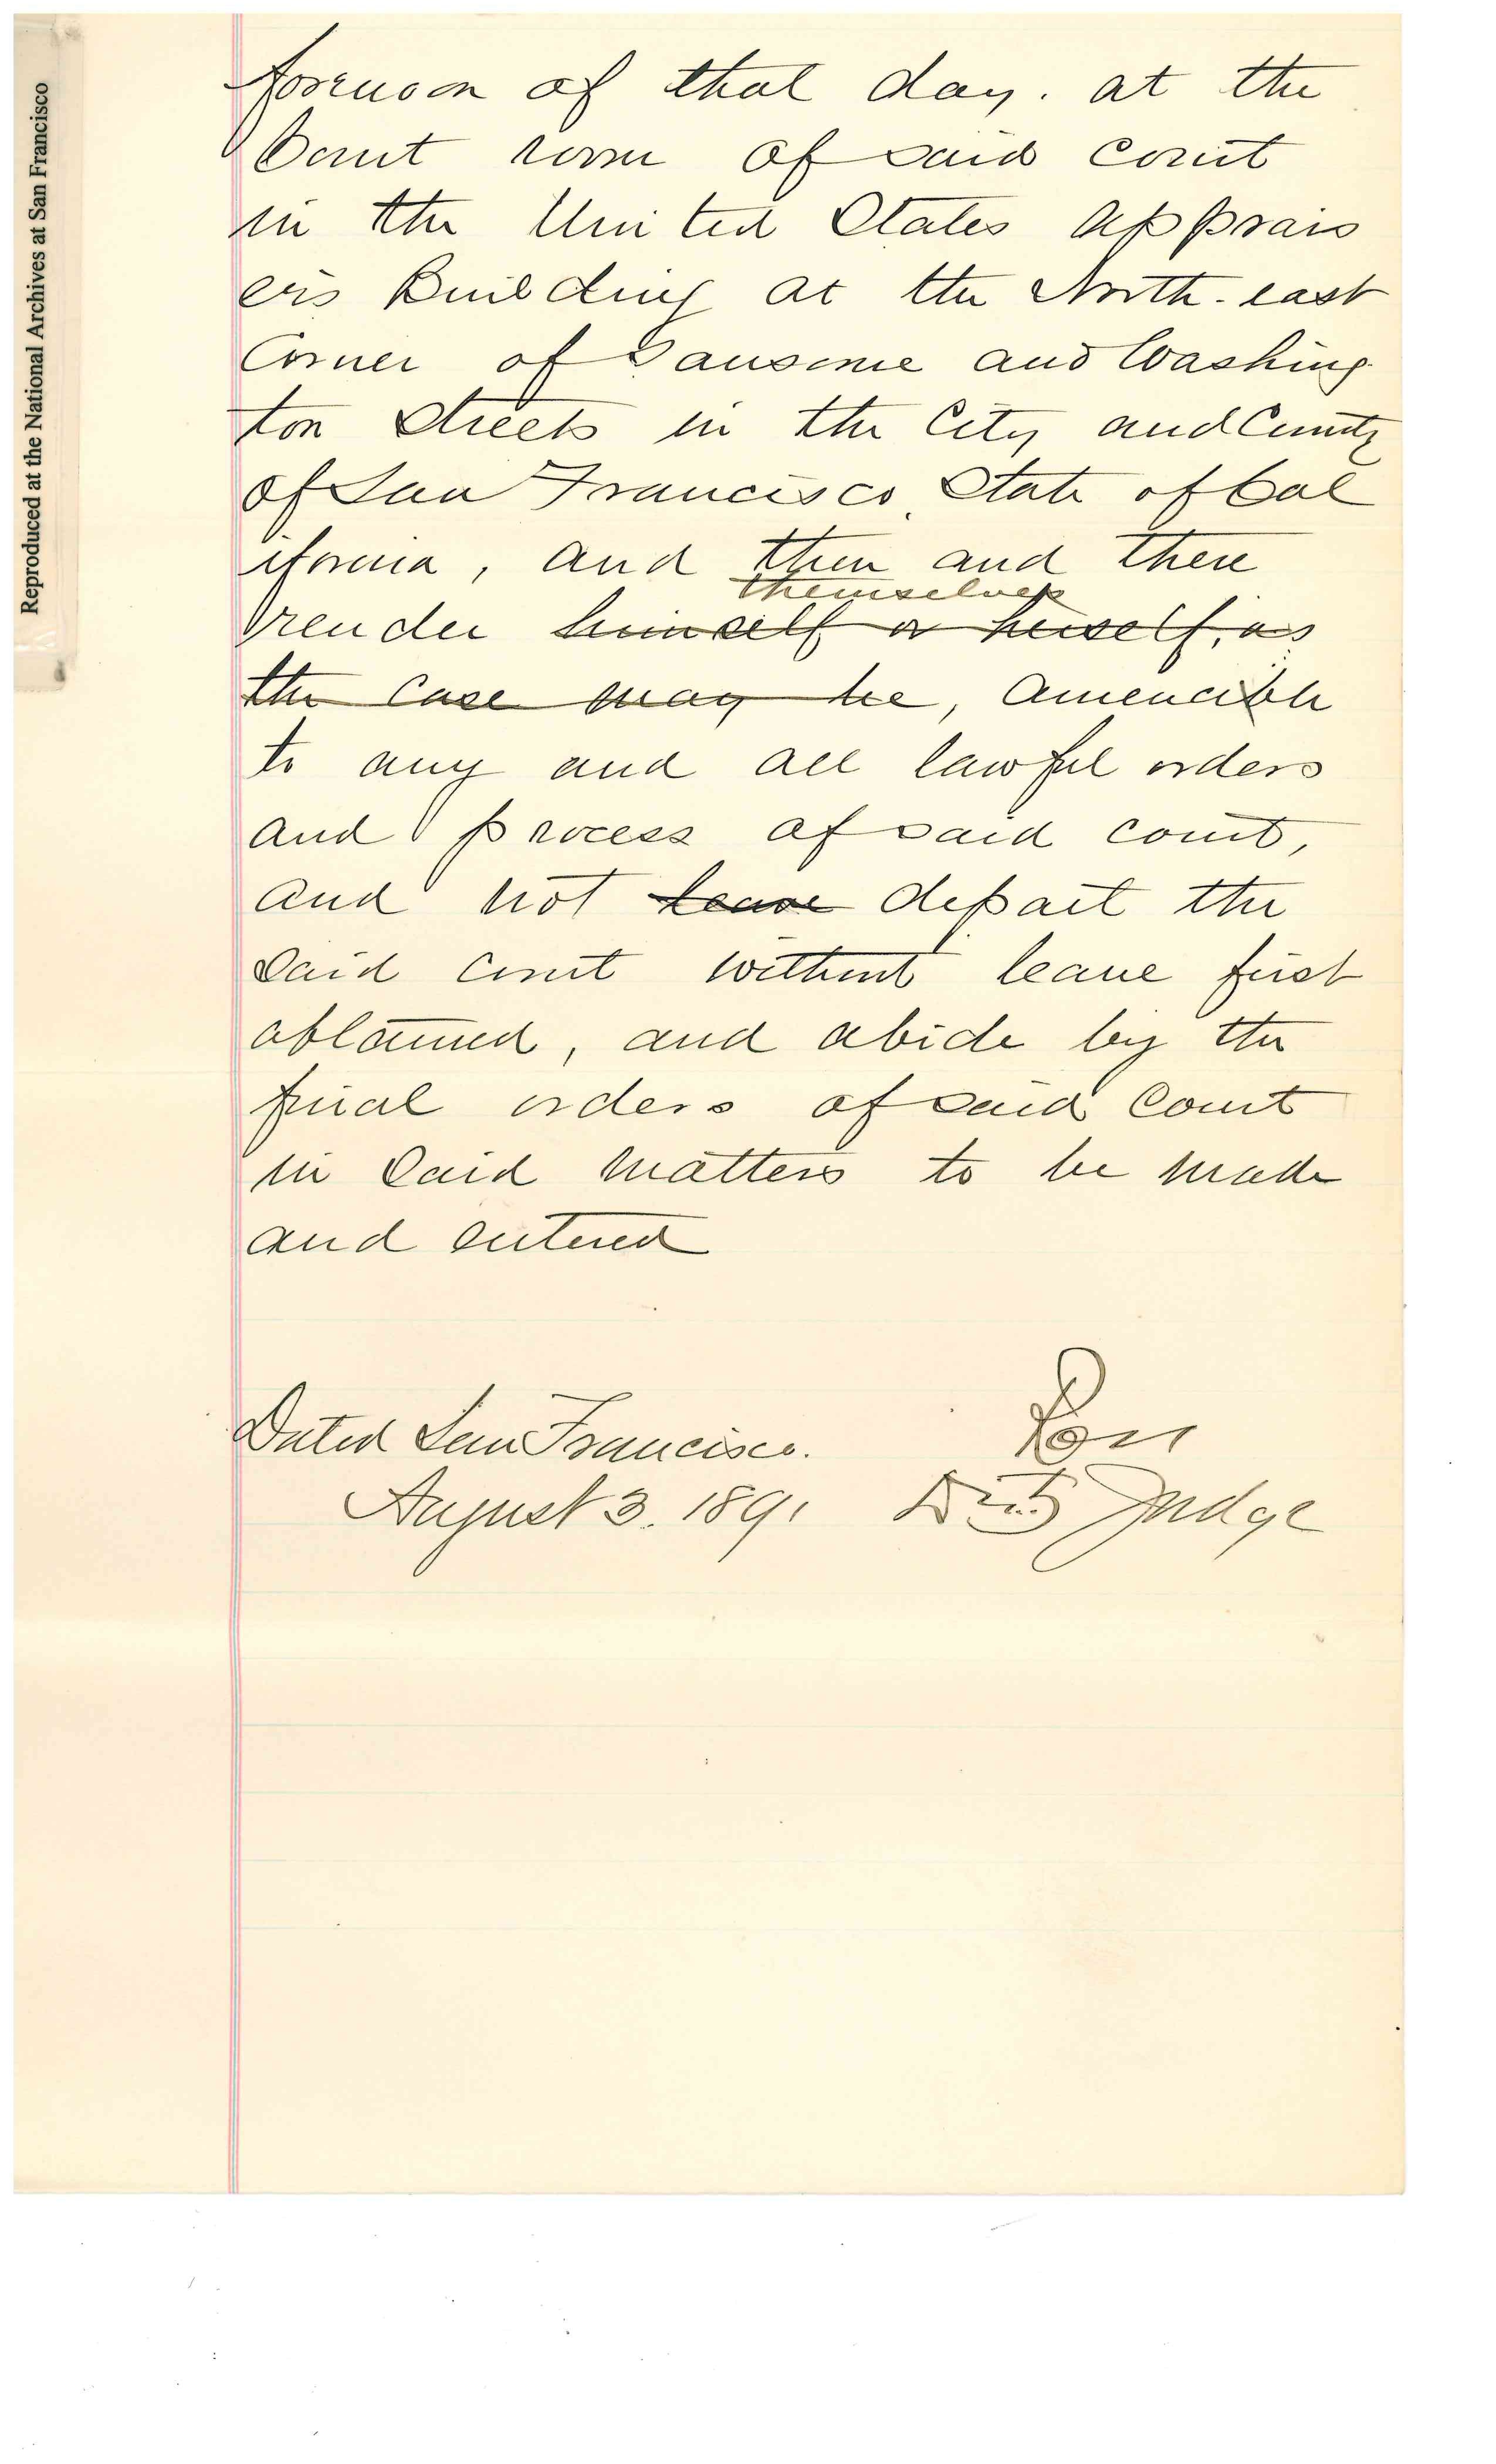 Reproduced at the National Archives at San Francisco
forenoon of that day. at the
Court room of said court
in the United States Apprais
ers Building at the North-east
Corner of Sansome and Washing
ton Streets in the City and County
of San Francisco, State of Cal
ifornia, and then and there
themselves
render himself or herself, as
the case may be, amenable
to any and all lawful orders
and process of said court,
and not leave depart the
said court without leave first
obtained, and abide by the
final orders of said Court
in said matters to be made
and entered
Dated San Francisco.
August 3. 1891
Judge